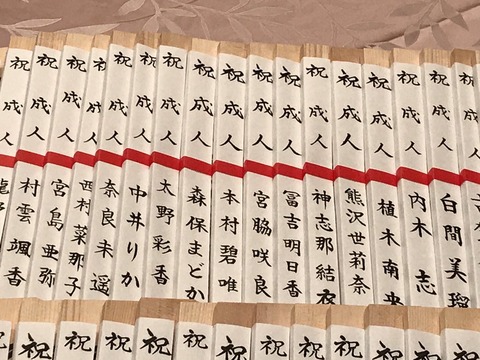 祝成人
白間美瑠
祝成人
内木志
祝成人
植木南央
祝成人
熊沢世莉奈
祝成人
神志那結衣
祝成人
冨吉明日香
祝成人
宮脇咲良
祝成人
本村碧唯
祝成人
森保まどか
祝成人
太野彩香
祝成人
中井りか
祝成人
奈良未遥
祝成人
西村菜那子
祝成人
宮島亜弥
祝成人
村雲颯香
祝
祝
祝
祝
祝
祝
祝
祝
祝
祝